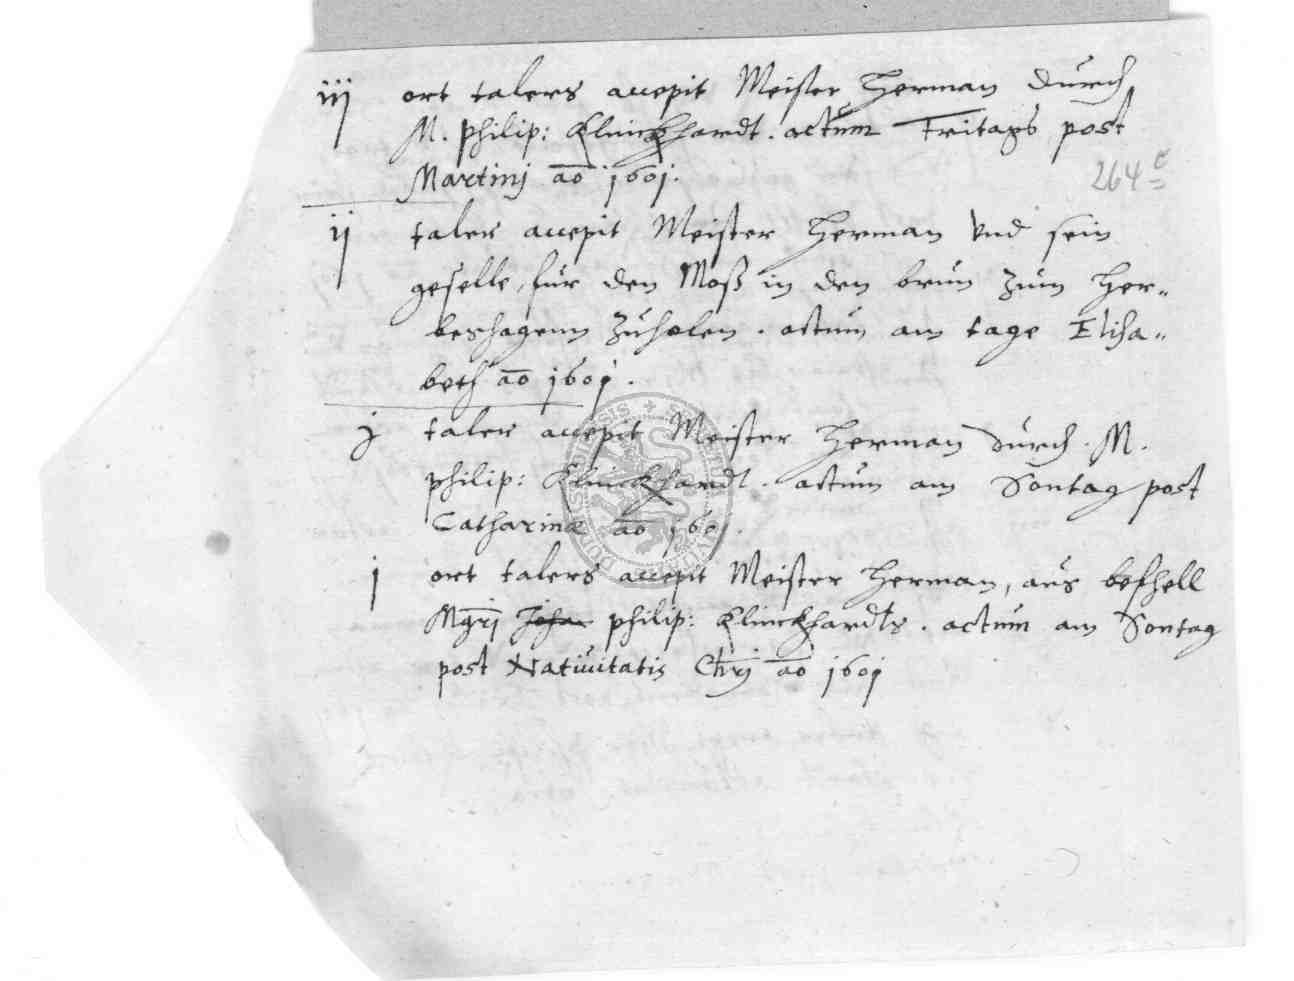 iij ort talers accepit Meister Herman durch
M. Philip: Klinckhardt. actum Fritags post
Martinj ao 1601.
264
ij taler accepit Meister Herman vnd sein
geselle, für den Moß in den brun zum Her„
beshagenn zuholen. actum am tage Elisa„
beth ao 1601.
j taler accepit Meister Herman durch. M.
Philip: Klinckhardt. actum am Sontag post
Catharinæ ao 1601.
j ort talers accepit Meister Herman, aus befhell
Mgrj Joha Philip: Klinckhardts. actum am Sontag
post Nativitatis Chrj ao 1601